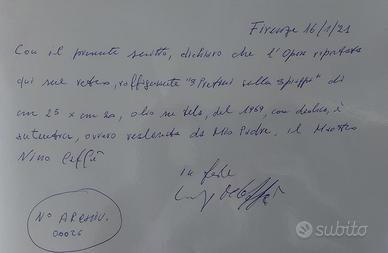 Firenze 16/1/21
Con il presente scritto, dichiaro che l'Opera riportata
qui sul retro, raffigurante "3 Pretini sulla spiaggia" di
cm 25 x cm 20, olio su tela, del 1969, con dedica, è
autentica, ovvero realizzata da Mio Padre, il Maestro
Nino Caffè
in fede
N° ARCHIV.
00026
subito